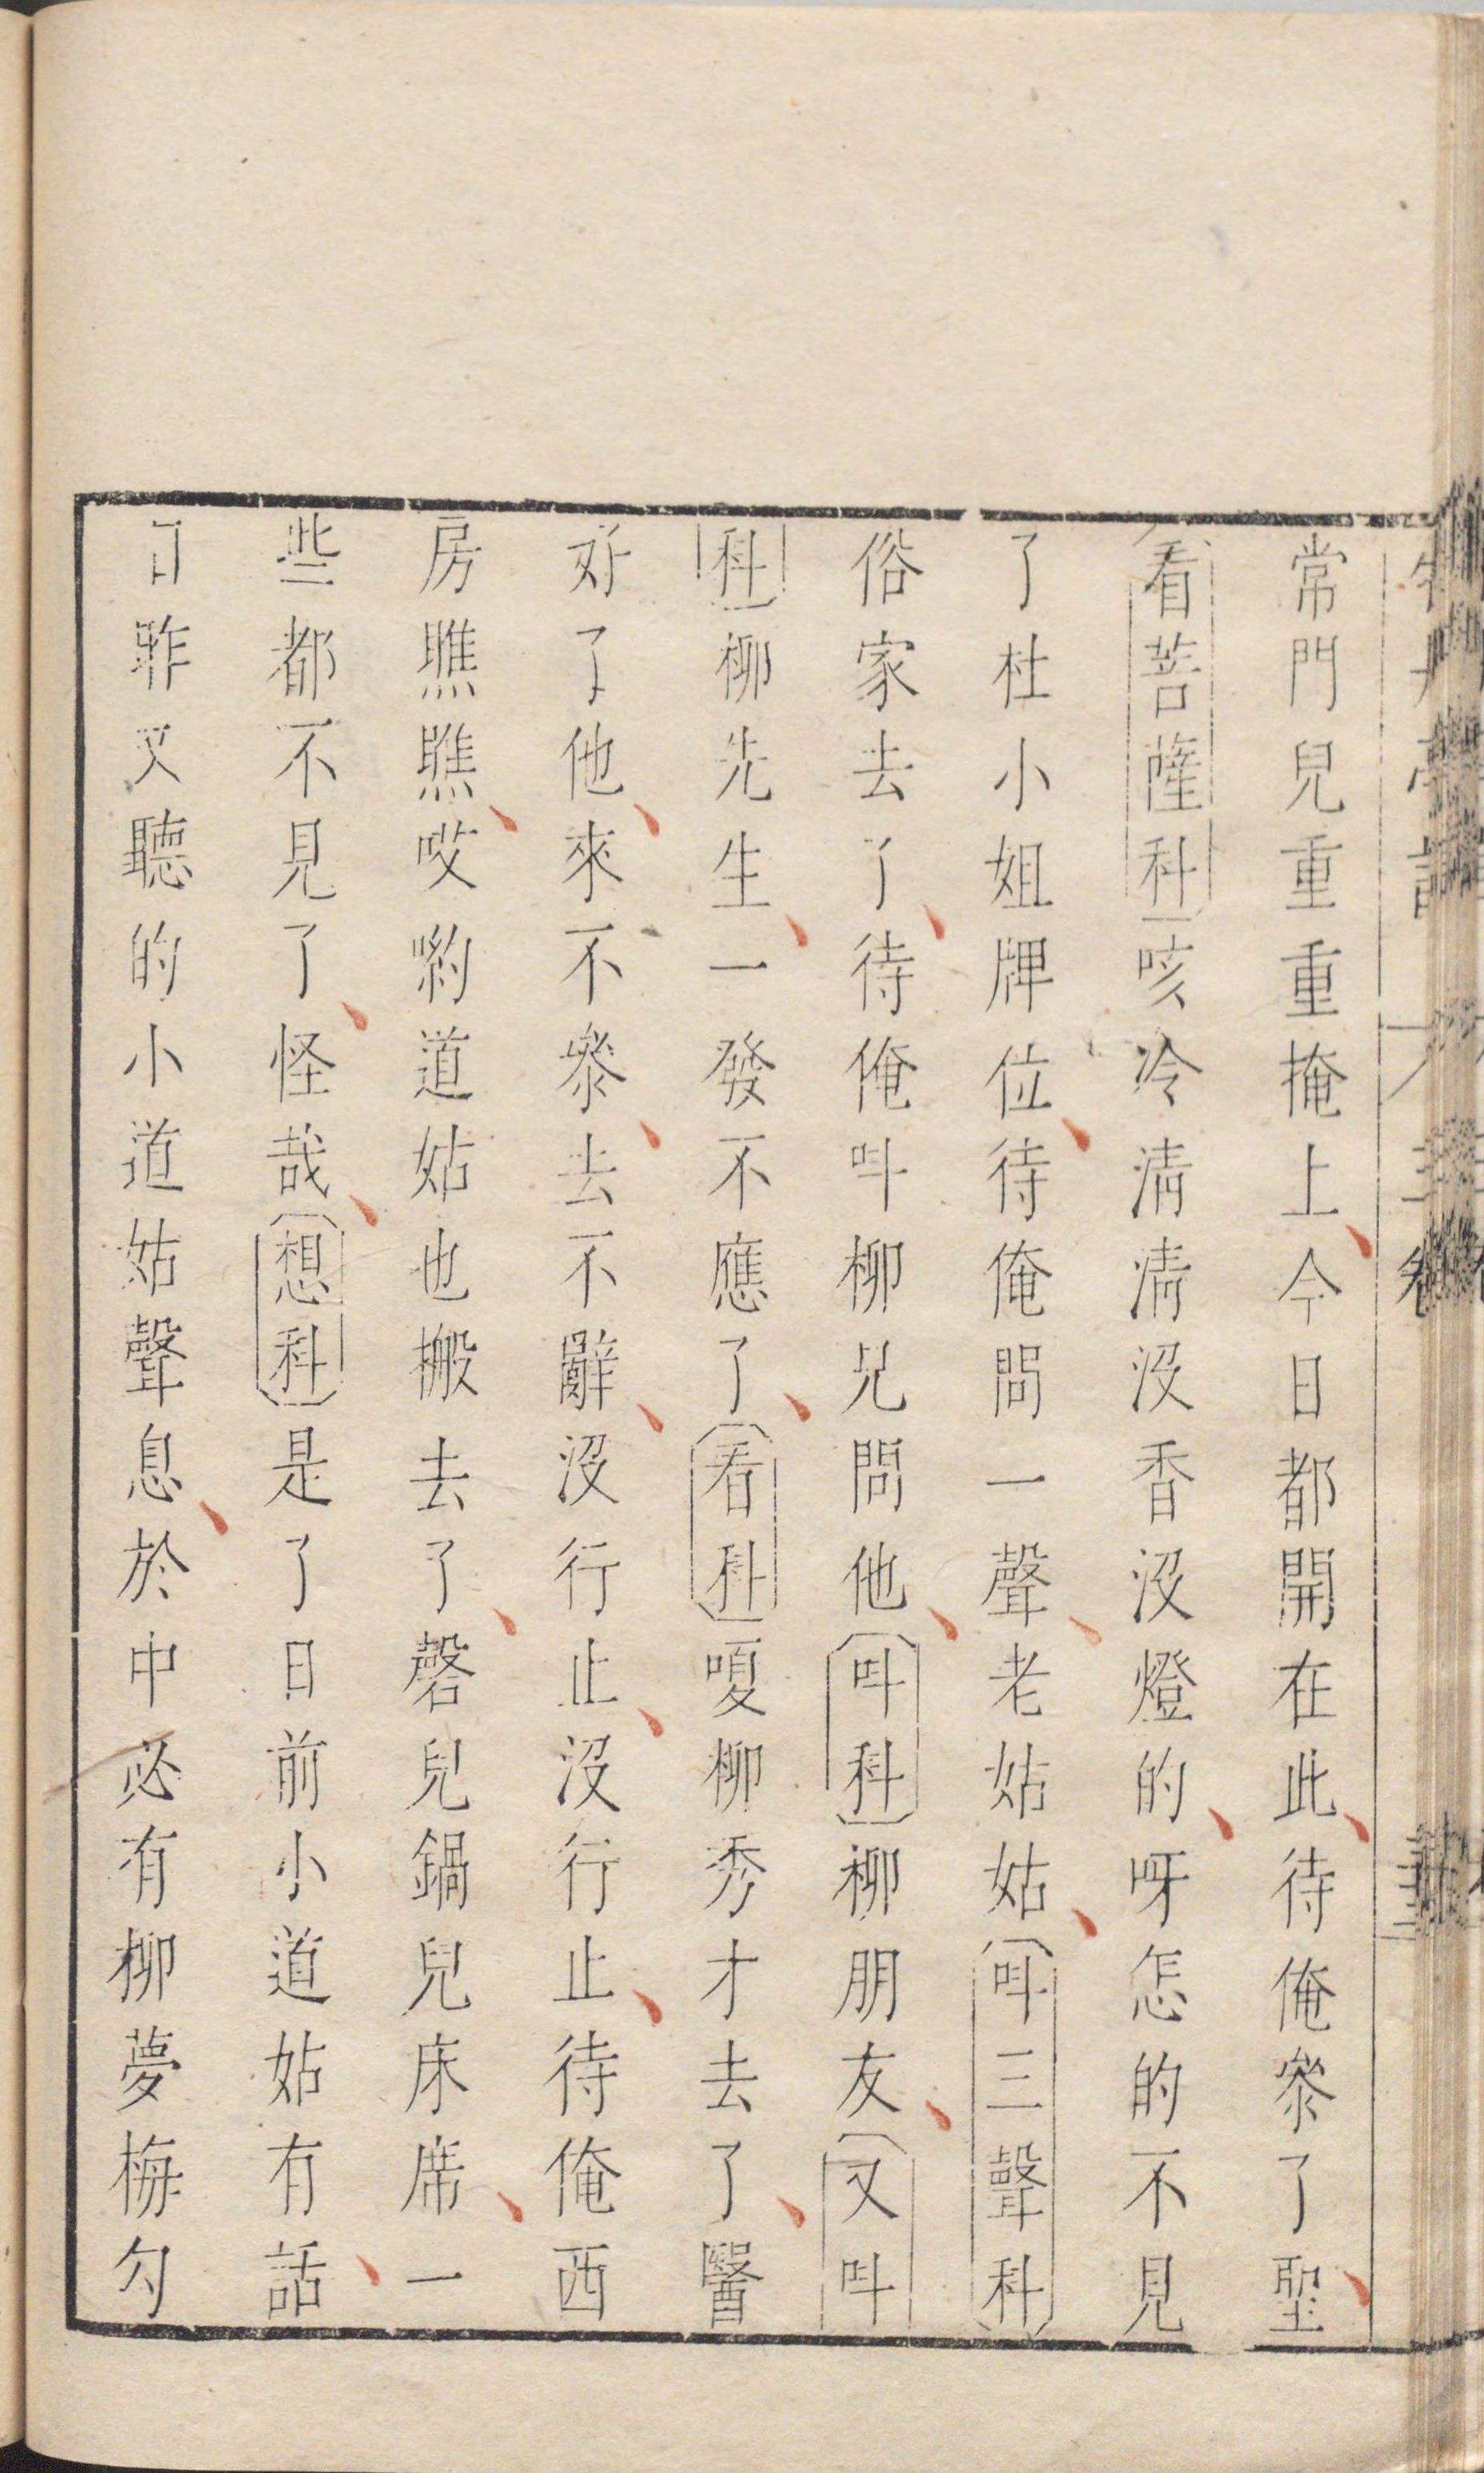 常門兒重重掩上今日都開在此待俺叅了聖
看菩薩科咳冷清清沒香沒燈的呀怎的不見
了杜小姐牌位待俺問一聲老姑姑叫三聲科
俗家去了待俺呌柳兄問他呌科柳朋友又呌
科柳先生一發不應了看科嗄柳秀才去了醫
好了他來不叅去不辭沒行止沒行止待俺西
房瞧瞧哎喲道姑也搬去了磬兒鍋兒床席一
些都不見了怪哉想科是了日前小道姑有話
日昨又聽的小道姑聲息於中必有柳夢梅勾